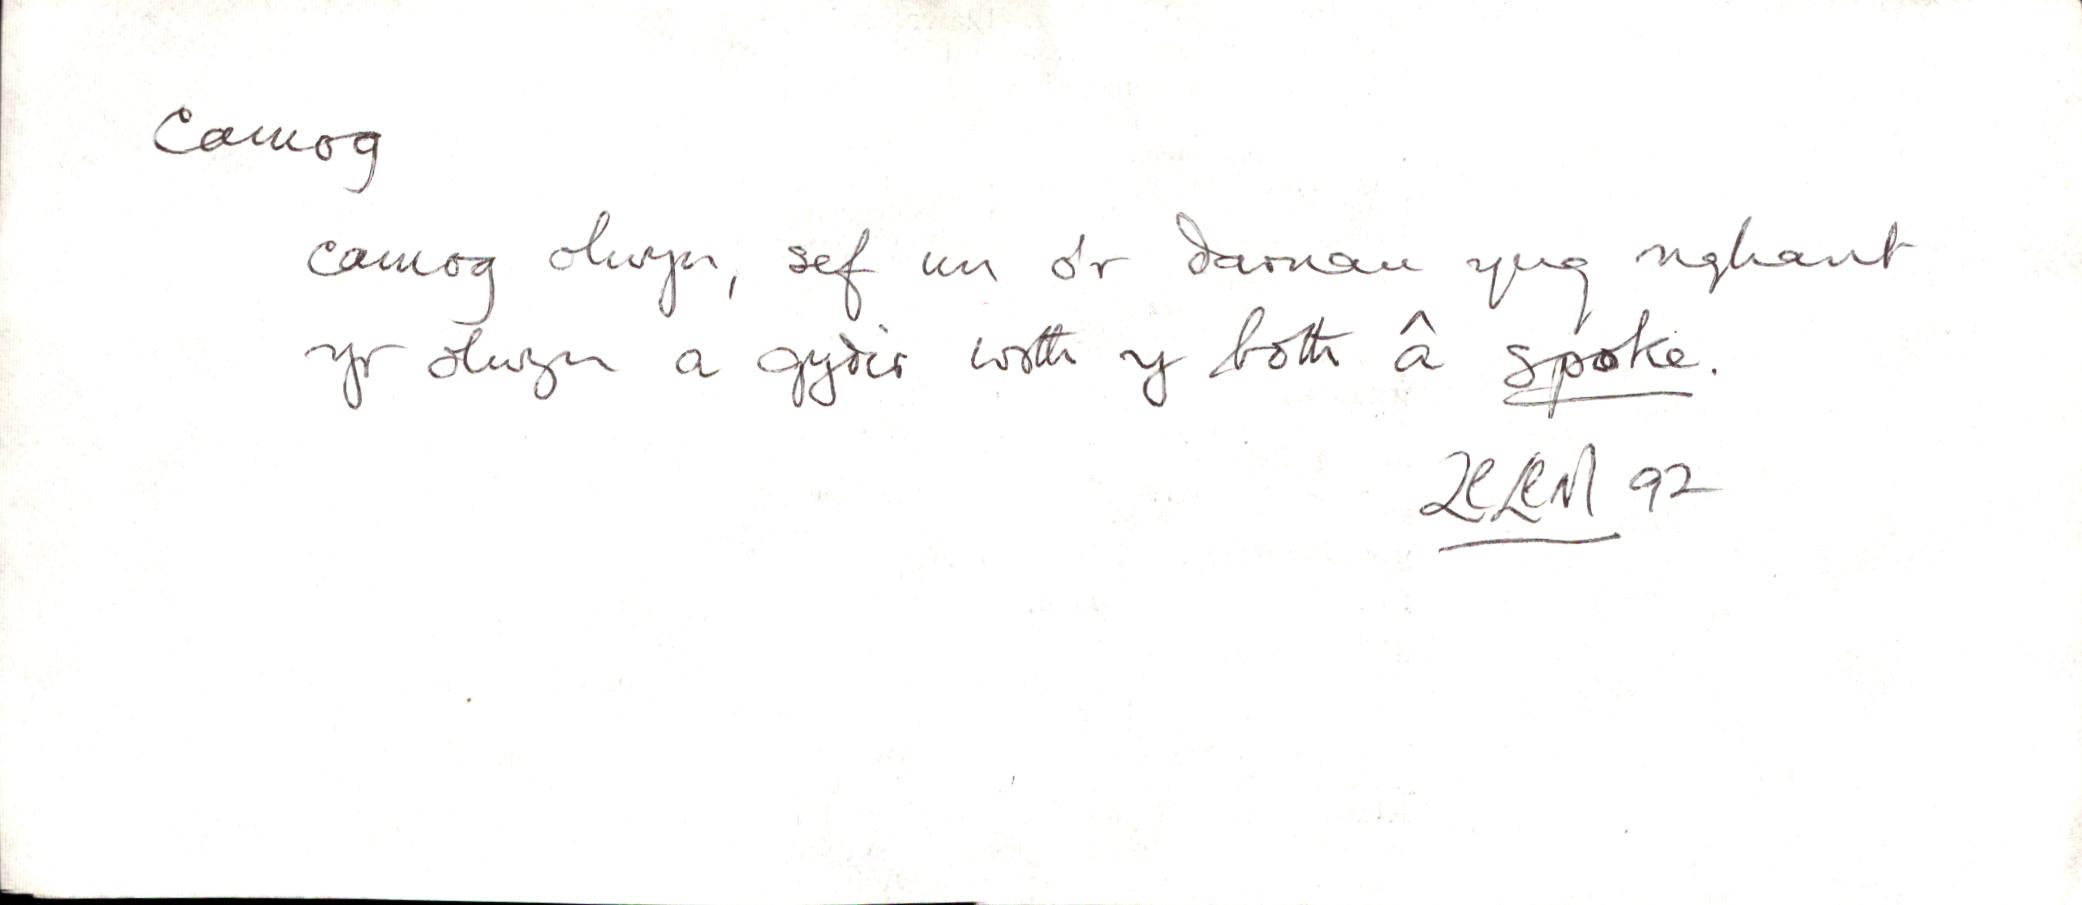 camog
camog olwyn, sef un o'r darnau yng nghant
yr olwyn a gydir wrth y both â spoke.
LlLlM 92